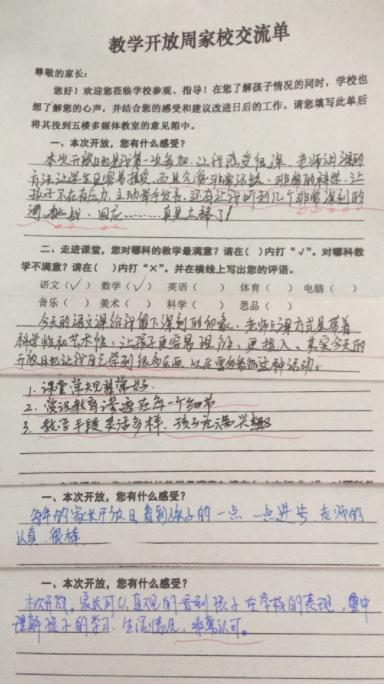 教学开放周家校交流单
尊敬的家长：
您好！欢迎您莅临学校参观、指导！在您了解孩子情况的同时，学校也
想了解您的心声，并结合您的感受和建议改进日后的工作。请您填写此单后
将其投到五楼多媒体教室的意见箱中。
一、本次开放，您有什么感受？
本次开放日也是我第一次参加，让我感受很深，老师讲课的
方法让学生更容易接受，而且会
孩子不存在压力，主动举手发言，还有让我听到几个非常深刻的
词，挑战，回应………真是太棒了！
二、走进课堂，您对哪科的教学最满意？请在（ ）内打“√”。对哪科教
学不满意？请在（ ）内打“×”。并在横线上写出您的评语。
语文（√） 数学（√） 英语（ ） 体育（ ） 电脑（ ）
音乐（ ） 美术（ ） 科学（ ） 思品（ ）
今天的语文课给我留下深刻的印象，老师上课方式是带着
科学性和艺术性，让孩子更容易 ，更投入，其实今天的
开放日也让我自己学到很多东西，以后要多参加这种活动。
1. 课堂常规非常好
2. 渗透在每一个细节
3. 教学手段灵活多样，孩子充满兴趣
一、本次开放，您有什么感受？
每年的家长开放日看到孩子的一点一点进步，老师的
认真，很棒
一、本次开放，您有什么感受？
本次开放，家长可以直观的看到孩子在学校的表现，集中
理解孩子的学习、生活情况，非常认可。